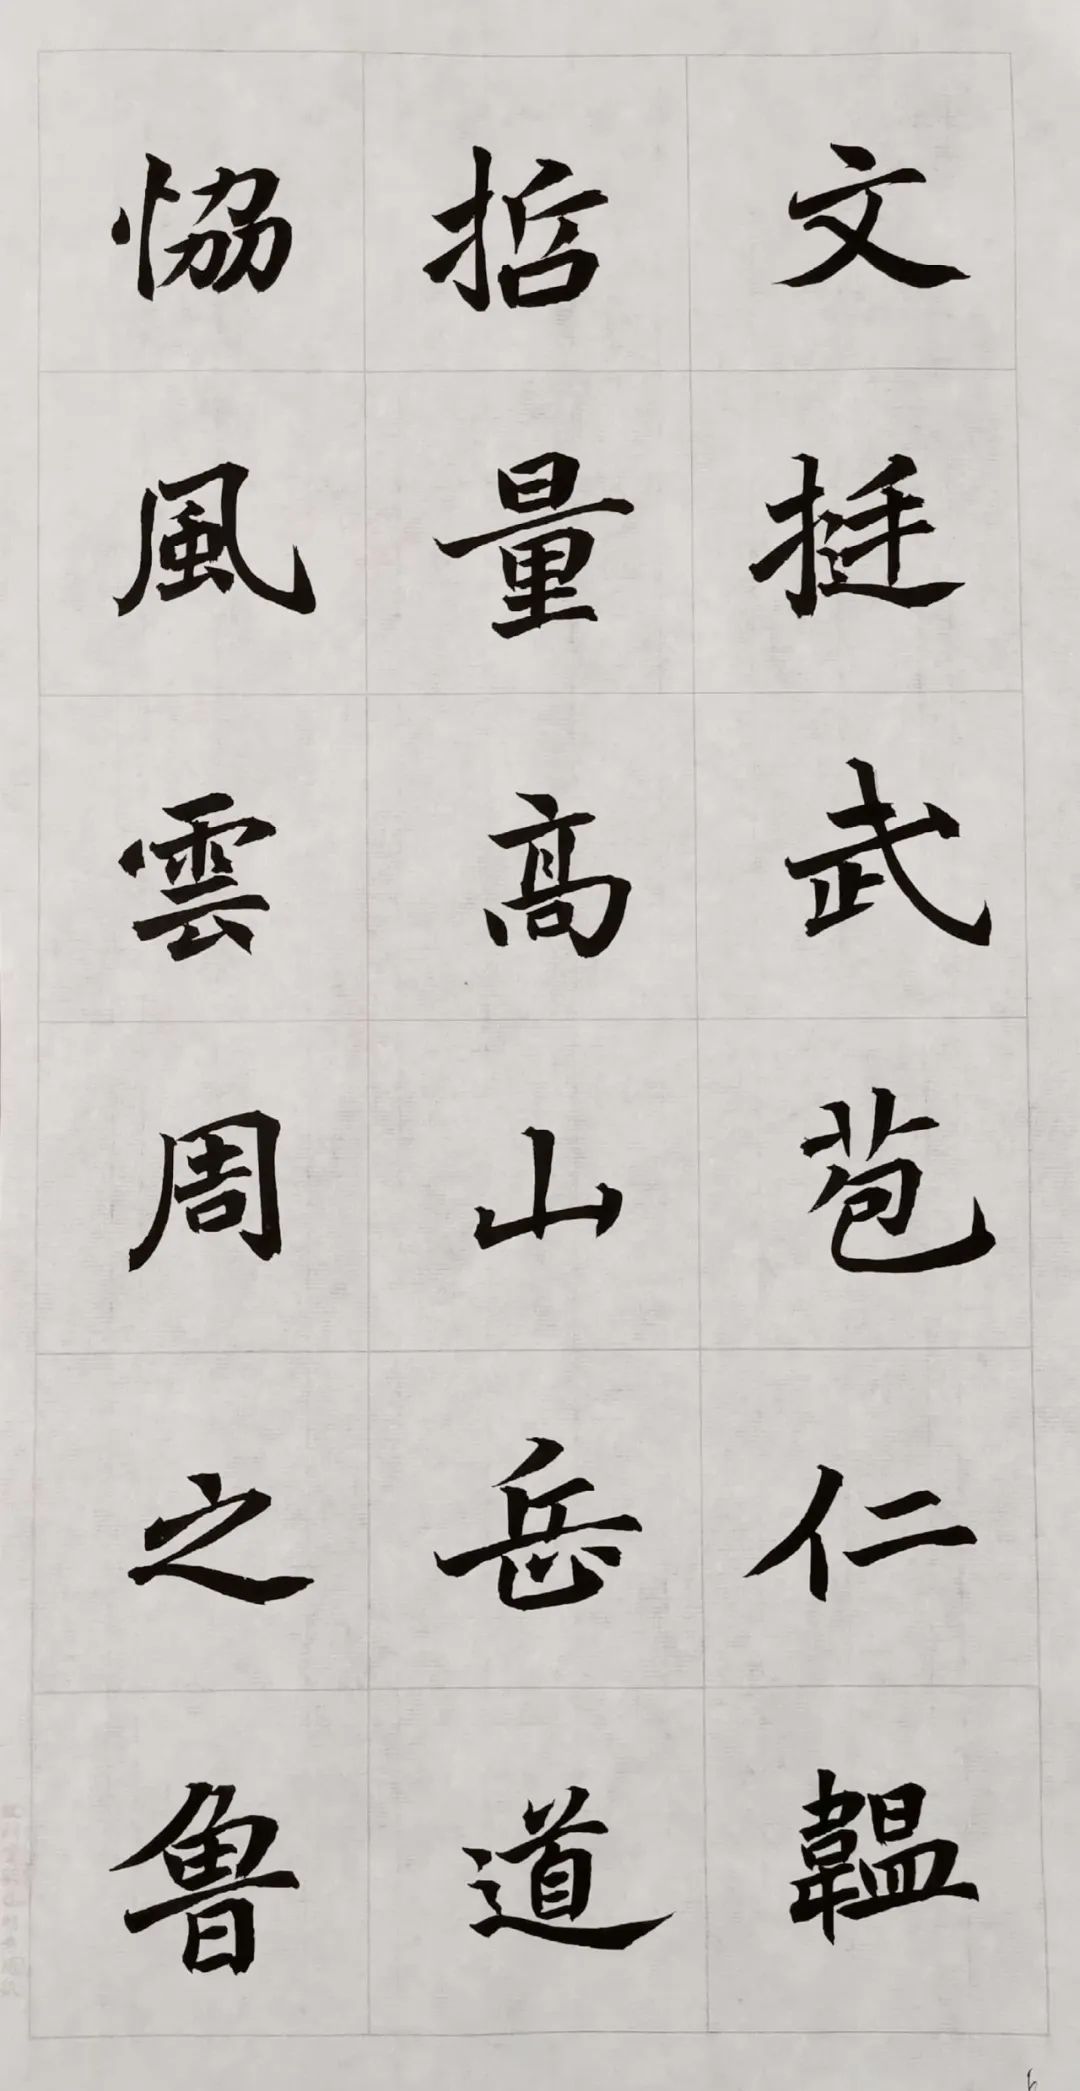 文挺武苞仁韞
哲量高山岳道
恊風雲周之魯